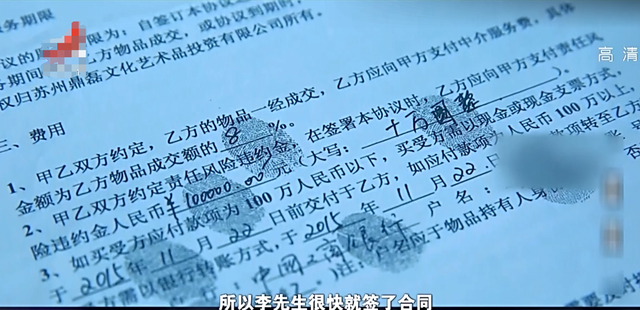 务期限
议的服务期限为，自签订本协议
务期间 方物品成交，或协议到期时，
权归苏州鼎磊文化艺术品投资有限公司所有。
高清
三、费用
1、甲乙双方约定，乙方的物品一经成交，乙方应向甲方支付中介服务费，具体
金额为乙方物品成交额的 8 %。在签署本协议时，乙方应向甲方支付责任风
险违约金人民币￥100000.00元（大写：十万圆整
2、甲乙双方约定责任风险违约金，买受方需以现金或现金支票方式，
如买受方应付款项为100万人民币以下，
于2015年11月22日前交付于乙方，如应付款项为人民币100万以上，
3、
方需以银行转账方式，于2015年11月22日
款项转至乙方
中国工商银行 户名：
注：户名应于物品持有人身
所以李先生很快就签了合同